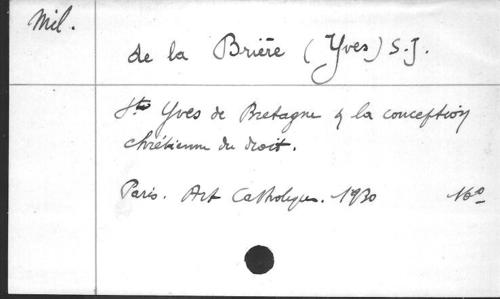 Mil.
de la Brière (Yves) S.J.
Sts Yves de Bretagne & la conception
chrétienne du droit.
Paris. Art Catholique. 1930 16o